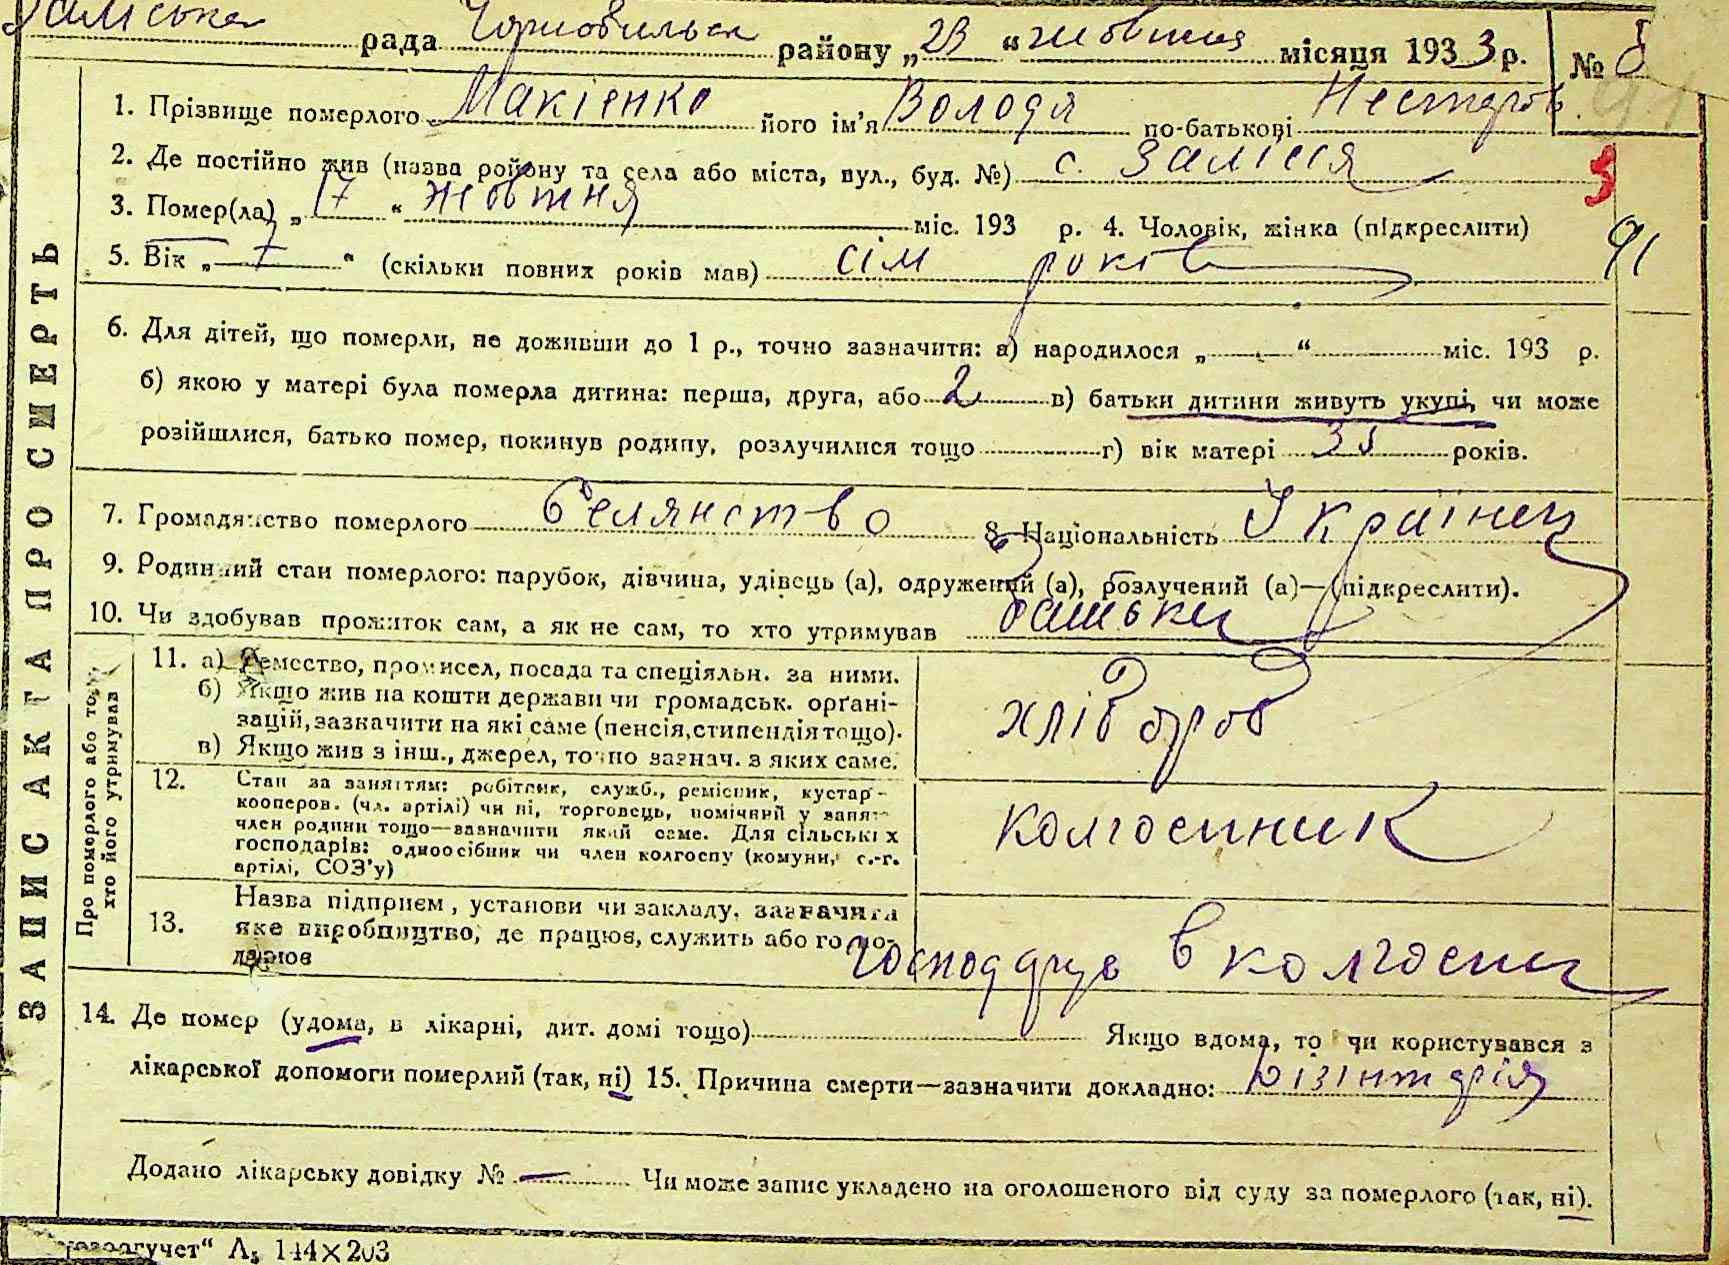 рада Чорнобильск району „23“ жовтня місяця 1933 р. №
1. Прізвище померлого Макієнко його ім'я Володя по-батькові Нестеров.
2. Де постійно жив (назва ройону та села або міста, вул., буд. №) с. Залісся
3. Помер(ла) „17“ жовтня міс. 193 р. 4. Чоловік, жінка (підкреслити)
91
5. Вік „7“ (скільки повних років мав) сім років
6. Для дітей, що померли, не доживши до 1 р., точно зазначити: а) народилося „—“ міс. 193 р.
б) якою у матері була померла дитина: перша, друга, або 2 в) батьки дитини живуть укупі, чи може
розійшлися, батько помер, покинув родину, розлучилися тощо г) вік матері 35 років.
7. Громадянство померлого Селянство 8. Національність Українец
9. Родинний стан померлого: парубок, дівчина, удівець (а), одружений (а), розлучений (а)—(підкреслити).
10. Чи здобував прожиток сам, а як не сам, то хто утримував батьки
ЗАПИС АКТА ПРО СМЕРТЬ
Про померлого або того, хто його утримував
11. а) Ремество, промисел, посада та спеціяльн. за ними.
б) Якщо жив на кошти держави чи громадськ. орґані-
зацій, зазначити на які саме (пенсія, стипендія тощо).
в) Якщо жив з інш., джерел, точно зазнач. з яких саме.
хлібороб
12. Стан за заняттям: робітник, служб., ремісник, кустар-
кооперов. (чл. артілі) чи ні, торговець, помічний у занят-
член родини тощо—зазначити який саме. Для сільських
господарів: одноосібник чи член колгоспу (комуни, с.-г.
артілі, СОЗ'у)
колгоспник
13. Назва підприєм, установи чи закладу, зазначити
яке виробництво, де працює, служить або госпо-
дарює
господарує в колгоспи
14. Де помер (удома, в лікарні, дит. домі тощо) Якщо вдома, то чи користувався з
лікарської допомоги померлий (так, ні) 15. Причина смерти—зазначити докладно: Дізінтерія
Додано лікарську довідку № — Чи може запис укладено на оголошеного від суду за померлого (так, ні).
144×203